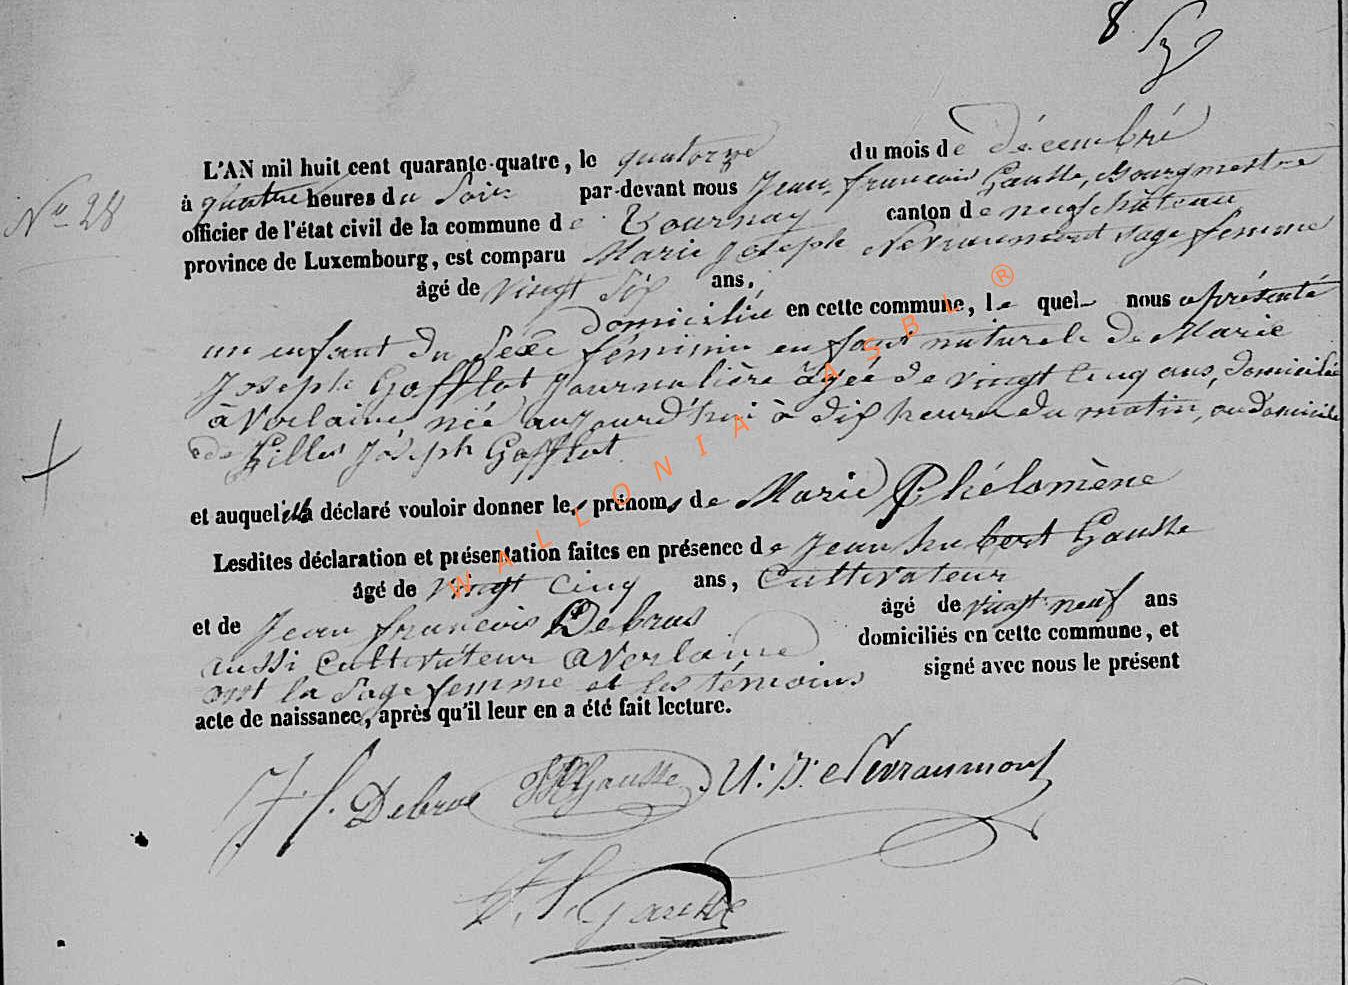 8
L'AN mil huit cent quarante-quatre, le quatorze du mois de décembré
No 28
à quatre heures du Soir par-devant nous Jean françois Gausse, Bourgmestre
officier de l'état civil de la commune de Tournay canton de neufchâteau
province de Luxembourg, est comparu Marie Joseph Nevraumont Sage femme
âgé de vingt Six ans,
Domiciliée en cette commune, le quel nous a présenté
un enfant du Sexe féminin enfant naturele de Marie
Joseph Gofflot Journalière âgée de vingt Cinq ans, Domiciliée
à Verlaine née aujourd'hui à dix heures du matin, au domicile
de Gilles Joseph Gofflot
et auquel a déclaré vouloir donner les prénoms de Marie Phélomène
Lesdites déclaration et présentation faites en présence de Jean hubert Gausse
âgé de vingt Cinq ans, Cultivateur
et de Jean françois Debras âgé de vingt neuf ans
aussi Cultivateur a Verlaine domiciliés en cette commune, et
ont la Sage femme et les témoins signé avec nous le présent
acte de naissance, après qu'il leur en a été fait lecture.
J. f. Debras Gausse M: J: Nevraumont
J. f. Gausse
WALLONIA ASBL ®